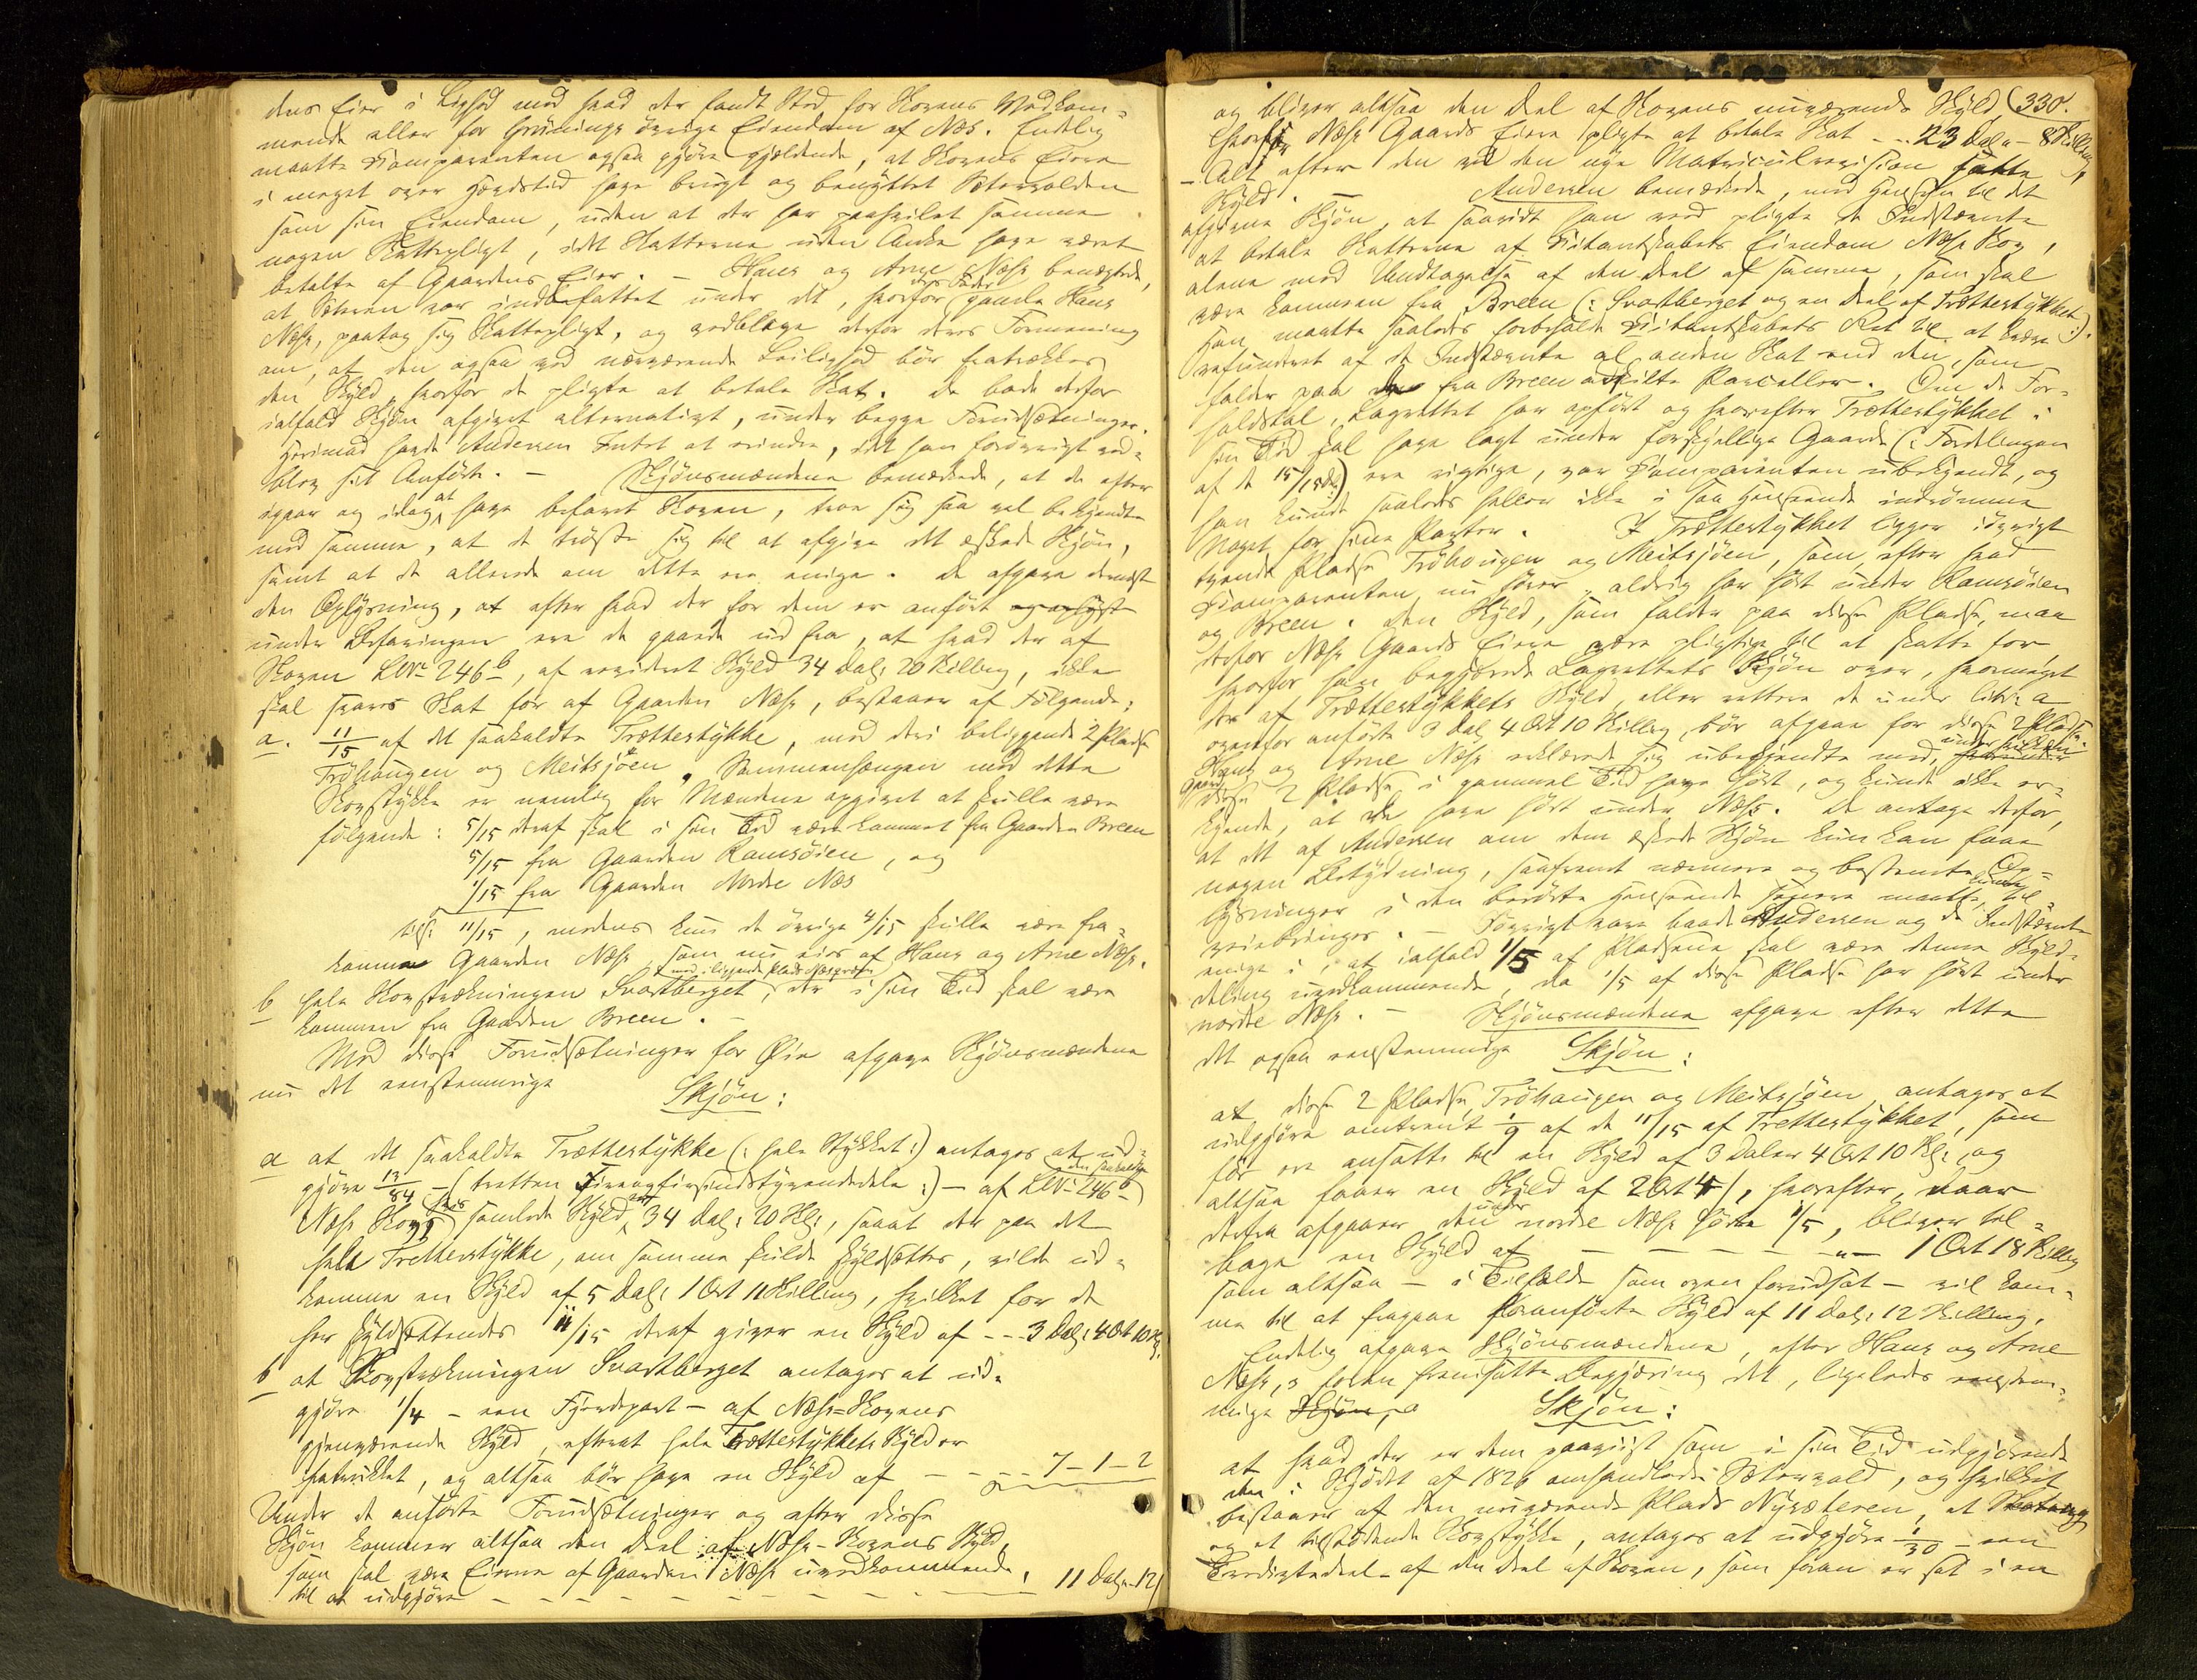 dens Eier i Lighed med hvad der fandt Sted for Skovens Vedkom-
mende eller for Grünings øvrige Eiendom af Næs. Endelig
maatte Komparenten ogsaa gjøre gjældende, at Skovens Eiere
i meget over Hævdstid have brugt og benyttet Sætervolden
som sin Eiendom, uden at der har paahvilet samme
nogen Skattepligt, idet Skatterne uden Anke have været
betalte af Gaardens Eier. – Hans og Arne Næss benægtede,
at Sæteren var indbefattet under det, hvorfor deres Fader gamle Hans
Næss, paatog sig Skattepligt, og vedbleve derfor deres Formening
om, at den ogsaa ved nærværende Leilighed bør fratrækkes
den Skyld, hvorfor de pligte at betale Skat. De bade derfor
ialfald Skjøn afgivet alternativt, under begge Forudsætninger.
Herimod havde Andersen Intet at erindre, idet han forøvrigt ved-
blev sit Anførte. – Skjønsmændene bemærkede, at de efter
igaar og idag at have befaret Skoven, tror sig saa vel bekjendte
med samme, at de trøste sig til at afgive det æskede Skjøn,
samt at de allerede om dette ere enige. De afgave dernæst
den Oplysning, at efter hvad der for dem er anført og oplyst
under Befaringen ere de gaaede ud fra, at hvad der af
Skoven LNr 246b, af revideret Skyld 34 Dal: 20 Skilling, ikke
skal svares Skat for af Gaarden Næss, bestaaer af Følgende:
a. 11/15 af det saakaldte Trættestykke, med deri beliggende 2 Pladse
Tröhaugen og Meitsjøen. Sammenhængen med dette
Skovstykke er nemlig for Mændene opgivet at skulle være
følgende: 5/15 deraf skal i sin Tid være kommet fra Gaarden Breen
5/15 fra Gaarden Ramsøien, og
1/15 fra Gaarden Nordre Næs
tils: 11/15, medens kun de øvrige 4/15 skulle være fra-
komne Gaarden Næss, som nu eies af Hans og Arne Næss.
b hele Skovstrækningen Svartberget, med iliggende Plads der i sin Tid skal være
kommen fra Gaarden Breen. –
Med disse Forudsætninger for Øie afgave Skjønsmændene
nu det eenstemmige Skjøn:
a at det saakaldte Trættestykke (: hele Stykket :) antages at ud-
gjøre 13/84 – (tretten Fireogfirsindstyvendedele :) – af den saakaldte LNr 246b
Næss Skovs samlede Skyld, 34 Dal: 20 Sk:, saaat der paa det
hele Trettestykke, om samme skulde skyldsættes, vilde ud-
komme en Skyld af 5 Dal: 1 Ort 11 Skilling, hvilket for de
her skyldsættendes 11/15 deraf giver en Skyld af - - 3 Dal: 4 Ort 10 Sk.
b at Skovstrækningen Svartberget antages at ud-
gjøre 1/4 – een Fjerdepart – af Næss-Skovens
gjenværende Skyld, efterat hele Trættestykkets Skyld er
fratrukket, og altsaa bør have en Skyld af - - - 7 – 1 – 2
Under de anførte Forudsætninger og efter disse
Skjøn kommer altsaa den Deel af Næss-Skovens Skyld,
som skal være Eierne af Gaarden Næss uvedkommende,
til at udgjøre - - - - - - - - - 11 Dal – 12
330.
og bliver altsaa den Deel af Skovens nuværende Skyld
hvorfor Næss Gaards Eiere pligte at betale Skat - - 23 Dal – 8 Skilling,
– Alt efter den ved den nye Matriculrevision satte
Skyld. – Andersen bemærkede, med Hensyn til det
afgivne Skjøn, at saavidt han veed pligte de Indstævnte
at betale Skatterne af Eiendom Næss Skov,
alene med Undtagelse af den Deel af samme, som skal
være kommen fra Breen (: Svartberget og en Deel af Trættestykket :).
Han maatte saaledes forbeholde Ret til at kræve
refunderet af de Indstævnte al anden Skat end den, som
falder paa de fra Breen adskilte Parceller. Om de For-
holdstal, Lagrettet har opført og hvorefter Trættestykket i
sin Tid skal have lagt under forskjellige Gaarde (: Fordelingen
af de 15/15de) ere rigtige, var Komparenten ubekjendt, og
han kunde saaledes heller ikke i saa Henseende indrømme
Noget for sine Parter. I Trættestykket ligger iøvrigt
tvende Pladse Tröhougen og Meitsjöen, som, efter hvad
Komparenten nu hører, aldrig har hørt under Ramsøien
og Breen. Den Skyld, som falder paa disse Pladse, maa
derfor Næss Gaards Eiere være pligtige til at skatte for
hvorfor han begjærede Lagrettets Skjøn over, hvormeget
der af Trættestykkets Skyld, eller rettere de under Litr: a
ovenfor anførte 3 Dal 4 Ort 10 Skilling, bør afgaae for disse 2 Pladse.
Hans og Arne Næss erklærede sig ubekjendte med, under hvilken
Gaard disse 2 Pladse i gammel Tid have hørt, og kunde ikke er-
kjende, at de have hørt under Næss. De antage derfor,
at det af Andersen om dem æskede Skjøn kun kan faae
nogen Betydning, saafremt nærmere og bestemte Op-
lysninger i den berørte Henseende senere maatte kunne til-
veiebringes. – Iøvrigt vare baade Andersen og de Indstævnte
enige i, at ialfald 1/5 af Pladsene skal være denne Skyld-
deling uvedkommende, da 1/5 af disse Pladse har hørt under
nordre Næss. – Skjønsmændene afgave efter dette
det ogsaa eenstemmige Skjøn:
at disse 2 Pladse, Tröhaugen og Meitsjöen, antages at
udgjøre omtrent 1/9 af de 11/15 af Trettestykket, som
før ere ansatte til en Skyld af 3 Daler 4 Ort 10 Sk:, og
altsaa faaer en Skyld af 2 Ort 4, hvorefter, naar
derfra afgaaer den under nordre Næss hørte 1/5, bliver til-
bage en Skyld af - - - - - - 1 Ort 18 Skilling
som altsaa – i Tilfælde som oven forudsat – vil kom-
me til at fragaae foranførte Skyld af 11 Dal: 12 Skilling.
Endelig afgave Skjønsmændene, efter Hans og Arne
Næss's foran fremsatte Begjæring det, ligeledes eenstem-
mige Skjøn:
at hvad der er dem paaviist som i sin Tid udgjørende
den i Skjødet af 1826 omhandlede Sætervold, og hvilket
bestaaer af den nuværende Plads Nysæteren, at
og et tilstødende Skovstykke, antages at udgjøre 1/30 – een
Tredivtedeel – af den Deel af Skoven, som foran er sat i en